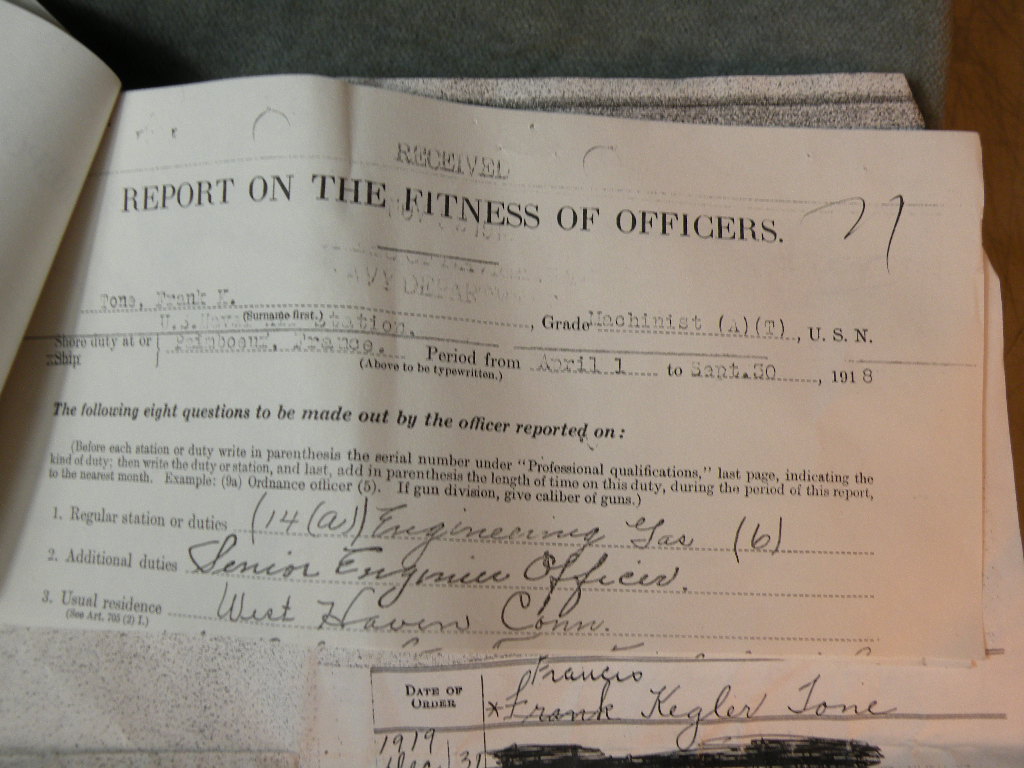 RECEIVED
REPORT ON THE FITNESS OF OFFICERS.
77
NAVY DEPAR
Tone, Frank K.
(Surname first.)
, Grade Machinist (A)(T) , U. S. N.
U.S. Naval Air Station,
Shore duty at or
xShip
Paimboeuf, France.
(Above to be typewritten.)
Period from April 1 to Sept.30 , 1918
The following eight questions to be made out by the officer reported on:
(Before each station or duty write in parenthesis the serial number under "Professional qualifications," last page, indicating the
kind of duty; then write the duty or station, and last, add in parenthesis the length of time on this duty, during the period of this report,
to the nearest month. Example: (9a) Ordnance officer (5). If gun division, give caliber of guns.)
1. Regular station or duties (14(a)) Engineering Gas (6)
2. Additional duties Senior Engineer Officer.
3. Usual residence West Haven Conn.
(See Art. 705 (2) I.)
DATE OF
ORDER
Francis
*Frank Kegler Tone
1919
Dec. 31